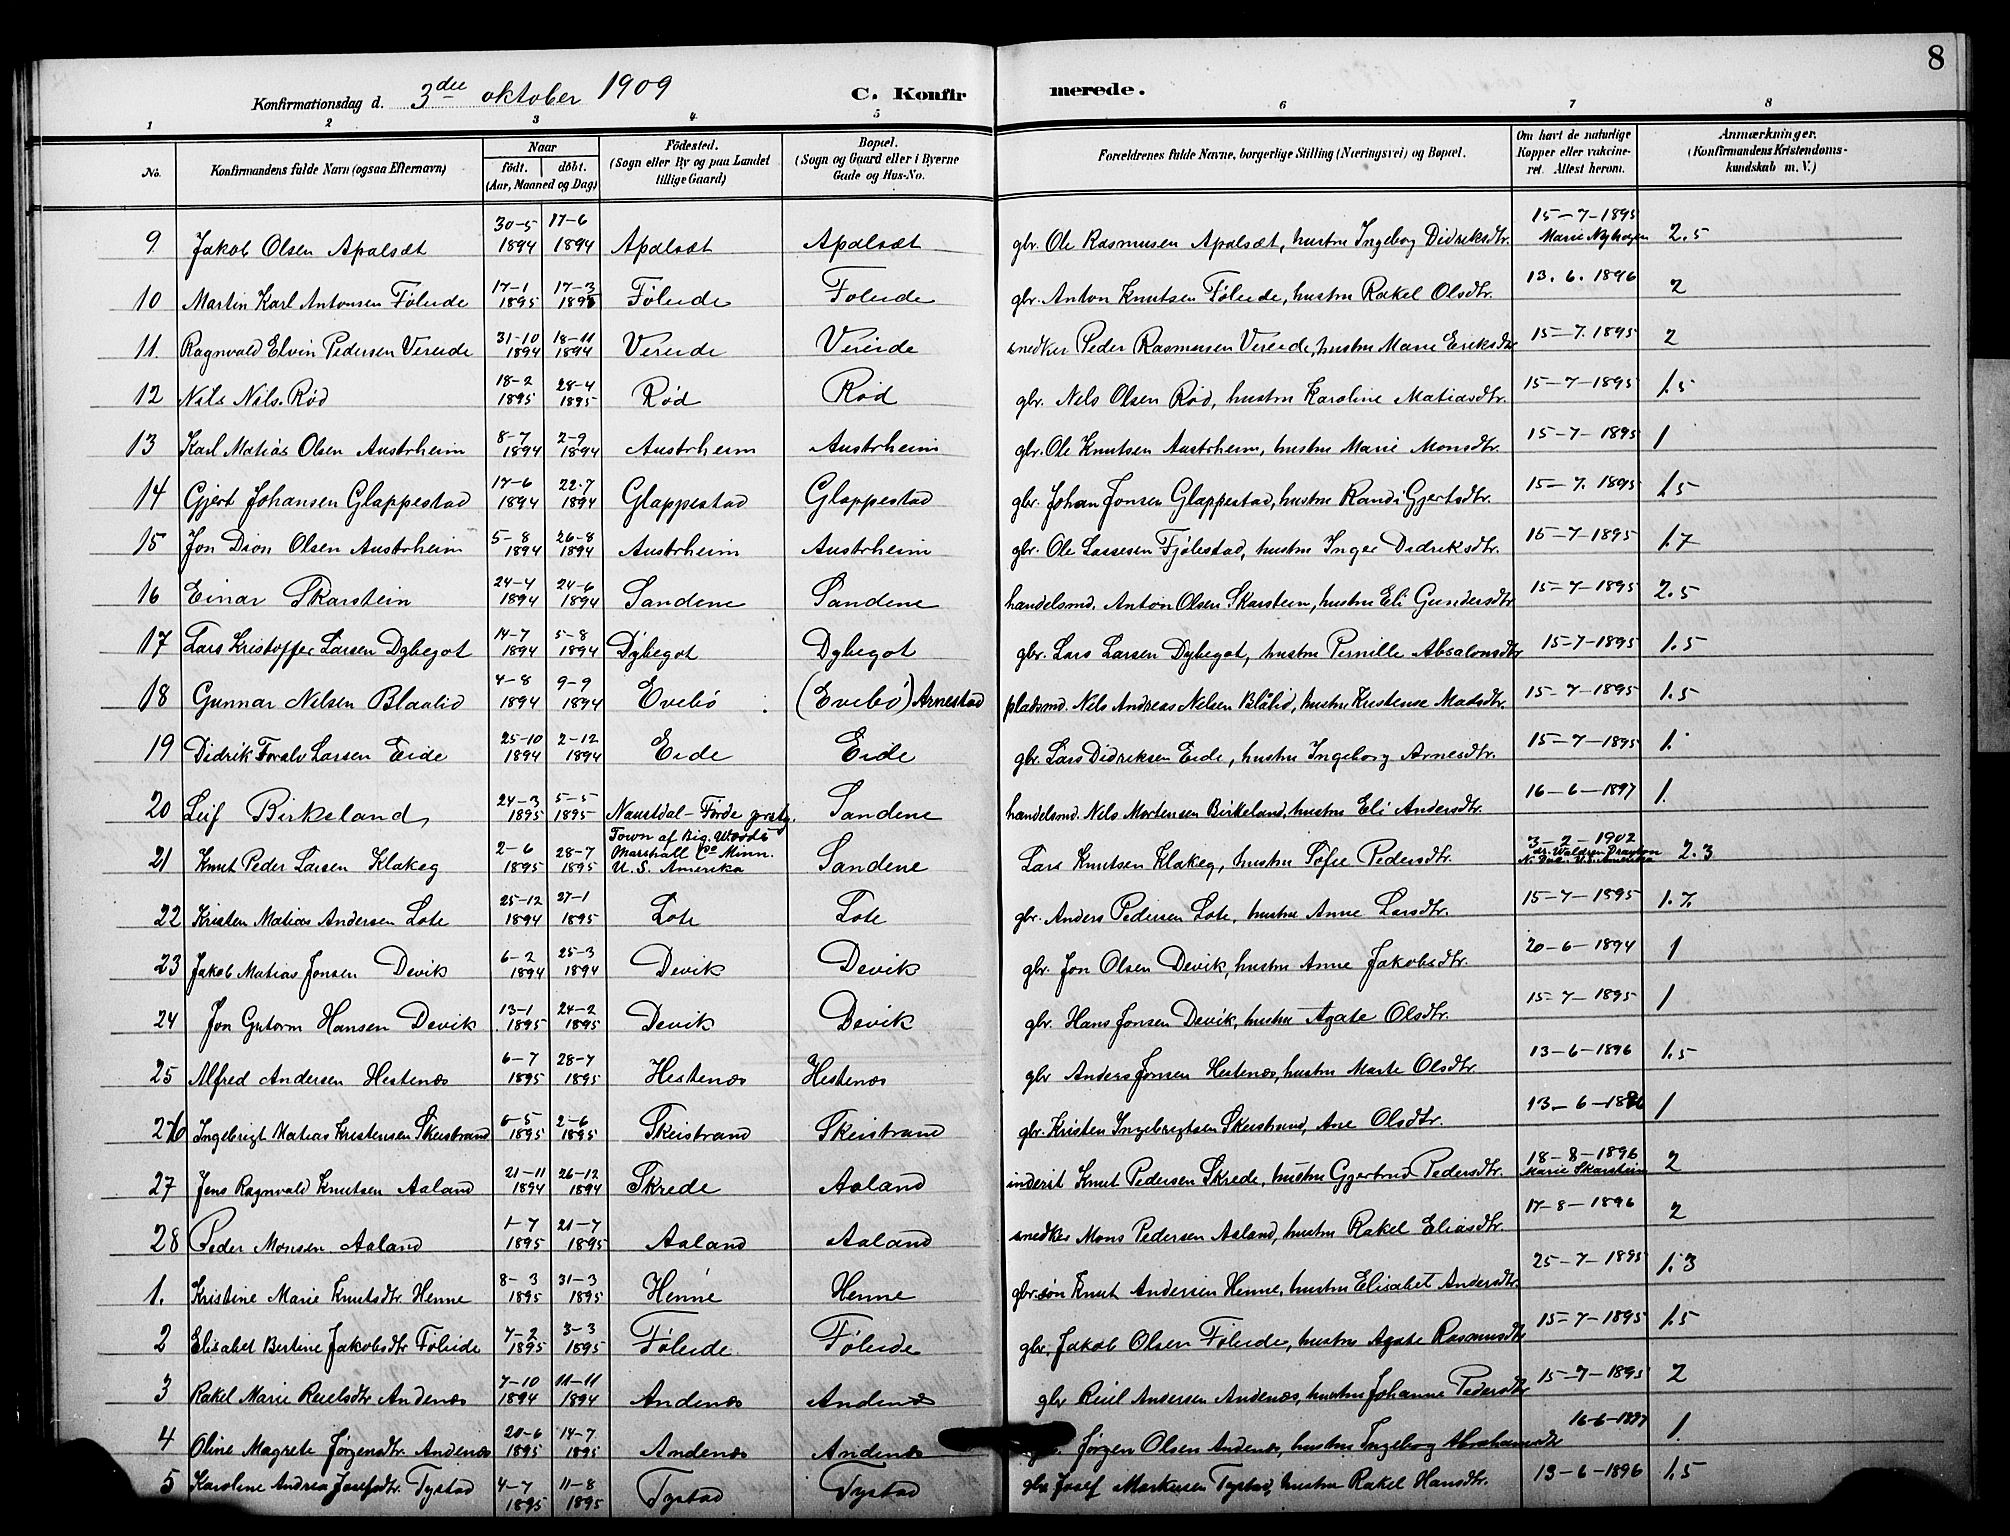 8
Konfirmationsdag d. 3die oktober 1909 C. Konfirmerede.
1 2 3 4 5 6 7 8
No. Konfirmandens fulde Navn (ogsaa Efternavn) Naar født. døbt. (Aar, Maaned og Dag) Fødested. (Sogn eller By og paa Landet tillige Gaard) Bopæl. (Sogn og Gaard eller i Byerne Gade og Hus-No. Forældrenes fulde Navne, borgerlige Stilling (Næringsvei) og Bopæl. Om havt de naturlige Kopper eller vakcineret. Attest herom. Anmærkninger. (Konfirmandens Kristendomskundskab m. V.)
9 Jakob Olsen Apalsæt 30-5 1894 17-6 1894 Apalsæt Apalsæt gbr. Ole Rasmusen Apalsæt, hustru Ingeborg Didriksdtr. 15-7-1895 Marie Nyhagen 2.5
10 Martin Karl Antonsen Føleide 17-1 1895 17-3 1895 Føleide Føleide gbr. Anton Knutsen Føleide, hustru Rakel Olsdtr. 13.6.1896 2
11. Ragnvald Elvin Pedersen Vereide 31-10 1894 18-11 1894 Vereide Vereide snedker Peder Rasmusen Vereide, hustru Marie Eriksdtr 15-7.1895 2
12 Nils Nils. Rød 18-2 1895 28-4 1895 Rød Rød gbr. Nils Olsen Rød, hustru Karoline Matiasdtr. 15-7-1895 1.5
13 Karl Matias Olsen Austrheim 8-7 1894 2-9 1894 Austrheim Austrheim gbr. Ole Knutsen Austrheim, hustru Marie Monsdtr. 15-7-1895 1
14 Gjert Johansen Glappestad 17-6 1894 22-7 1894 Glappestad Glappestad gbr. Johan Jonsen Glappestad, hustru Randi Gjertsdtr. 15-7.1895 1.5
15 Jon Dion Olsen Austrheim 5-8 1894 26-8 1894 Austrheim Austrheim gbr. Ole Lassesen Fjølestad, hustru Inger Didriksdtr. 15-7-1895 1.7
16 Einar Skarstein 24-4 1894 24-6 1894 Sandene Sandene handelsmd. Anton Olsen Skarstein, hustru Eli Gundersdtr 15-7-1895 2.5
17 Lars Kristoffer Larsen Dybegot 14-7 1894 5-8 1894 Dybegot Dybegot gbr. Lars Larsen Dybegot, hustru Pernille Absalonsdtr 15-7-1895 1.5
18 Gunnar Nilsen Blaalid 4-8 1894 9-9 1894 Evebø (Evebø) Arnestad pladsmd. Nils Andreas Nilsen Blålid, hustru Kristense Madsdtr. 15-7-1895 1.5
19 Didrik Toralv Larsen Eide 25-10 1894 2-12 1894 Eide Eide gbr. Lars Didriksen Eide, hustru Ingeborg Arnesdtr. 15-7-1895 1.
20 Leif Birkeland 24-3 1895 5-5 1895 Naustdal-Førde prstg. Sandene handelsmd. Nils Mortensen Birkeland, hustru Eli Andersdtr. 16-6-1897 1.
21 Knut Peder Larsen Klakeg 2-6 1895 28-7 1895 Town af Big Woods Marshall Co Minn. U.S. Amerika Sandene Lars Knutsen Klakeg, hustru Sofie Pedersdtr. 3-2-1902 dr. Waldren Drayton 2.3
22 Kristen Matias Andersen Lote 25-12 1894 27-1 1895 Lote Lote gbr. Anders Pedersen Lote, hustru Anne Larsdtr. 15-7-1895 1.7.
23 Jakob Matias Jonsen Devik 6-2 1894 25-3 1894 Devik Devik gbr. Jon Olsen Devik, hustru Anne Jakobsdtr. 20-6-1894 1
24 Jon Gutorm Hansen Devik 13-1 1895 24-2 1895 Devik Devik gbr. Hans Jonsen Devik, hustru Agate Olsdtr. 15-7-1895 1
25 Alfred Andersen Hestenæs 6-7 1895 28-7 1895 Hestenæs Hestenæs gbr Anders Jonsen Hestenæs, hustru Marte Olsdtr. 13-6-1896 1.5
26 Ingebrigt Matias Kristensen Skeistrand 6-5 1895 2-6 1895 Skeistrand Skeistrand gbr. Kristen Ingebrigtsen Skeistrand, Ane Olsdtr. 13-6-1896 1
27 Jens Ragnvald Knutsen Aaland 21-11 1894 26-12 1894 Skrede Aaland inderst Knut Pedersen Skrede, hustru Gjertrud Pedersdtr. 18-8-1896 Marie Skarstein 2
28 Peder Monsen Aaland 1-7 1895 21-7 1895 Aaland Aaland snedker Mons Pedersen Aaland, hustru Rakel Eliasdtr. 17-8-1896 2
1. Kristine Marie Knutsdtr. Henne 8-3 1895 31-3 1895 Henne Henne gbr.søn Knut Andersen Henne, hustru Elisabet Andersdtr. 25-7-1895 1.3
2 Elisabet Bertine Jakobsdtr Føleide 7-2 1895 3-3 1895 Føleide Føleide gbr. Jakob Olsen Føleide, hustru Agate Rasmusdtr 15-7-1895 1.5
3 Rakel Marie Reielsdtr Andenæs 7-10 1894 11-11 1894 Andenæs Andenæs gbr Reiel Andersen Andenæs, hustru Johanne Pedersdtr 15-7-1895 2
4 Oline Magrete Jørgensdtr. Andenæs 20-6 1895 14-7 1895 Andenæs Andenæs Jørgen Olsen Andenæs, hustru Ingeborg Abrahamsdtr 16-6-1897 1.
5 Karoline Andrea Josefsdtr. Tystad 4-7 1895 11-8 1895 Tystad Tystad gbr. Josef Markusen Tystad, hustru Rakel Hansdtr. 13-6-1896 1.5